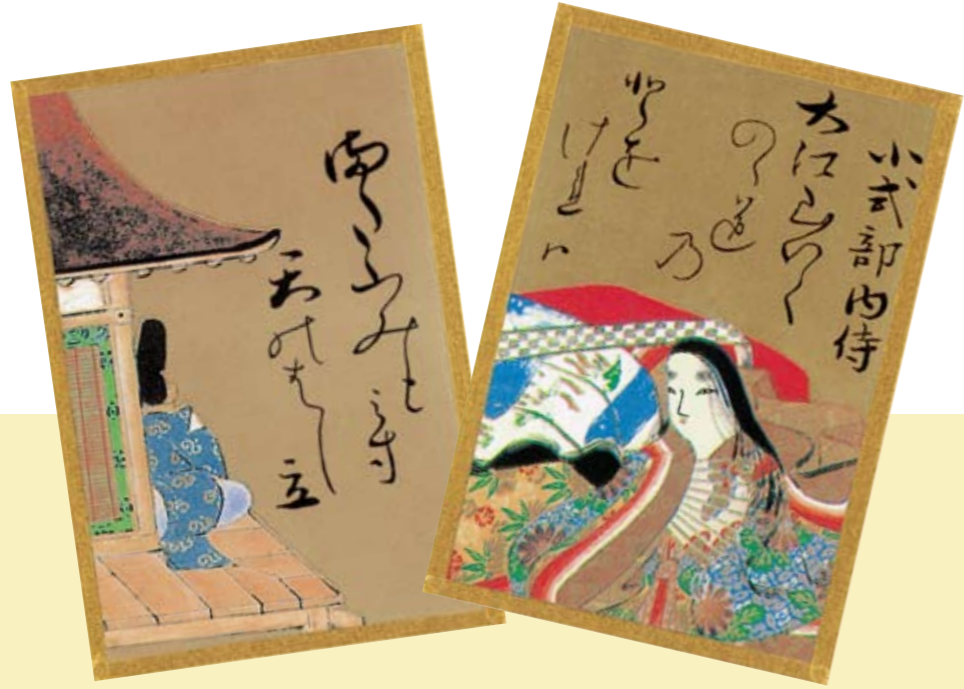 小式部内侍
大江山いく
のゝ道
乃
とを
けれハ
満たふみもみす
天のはし
立